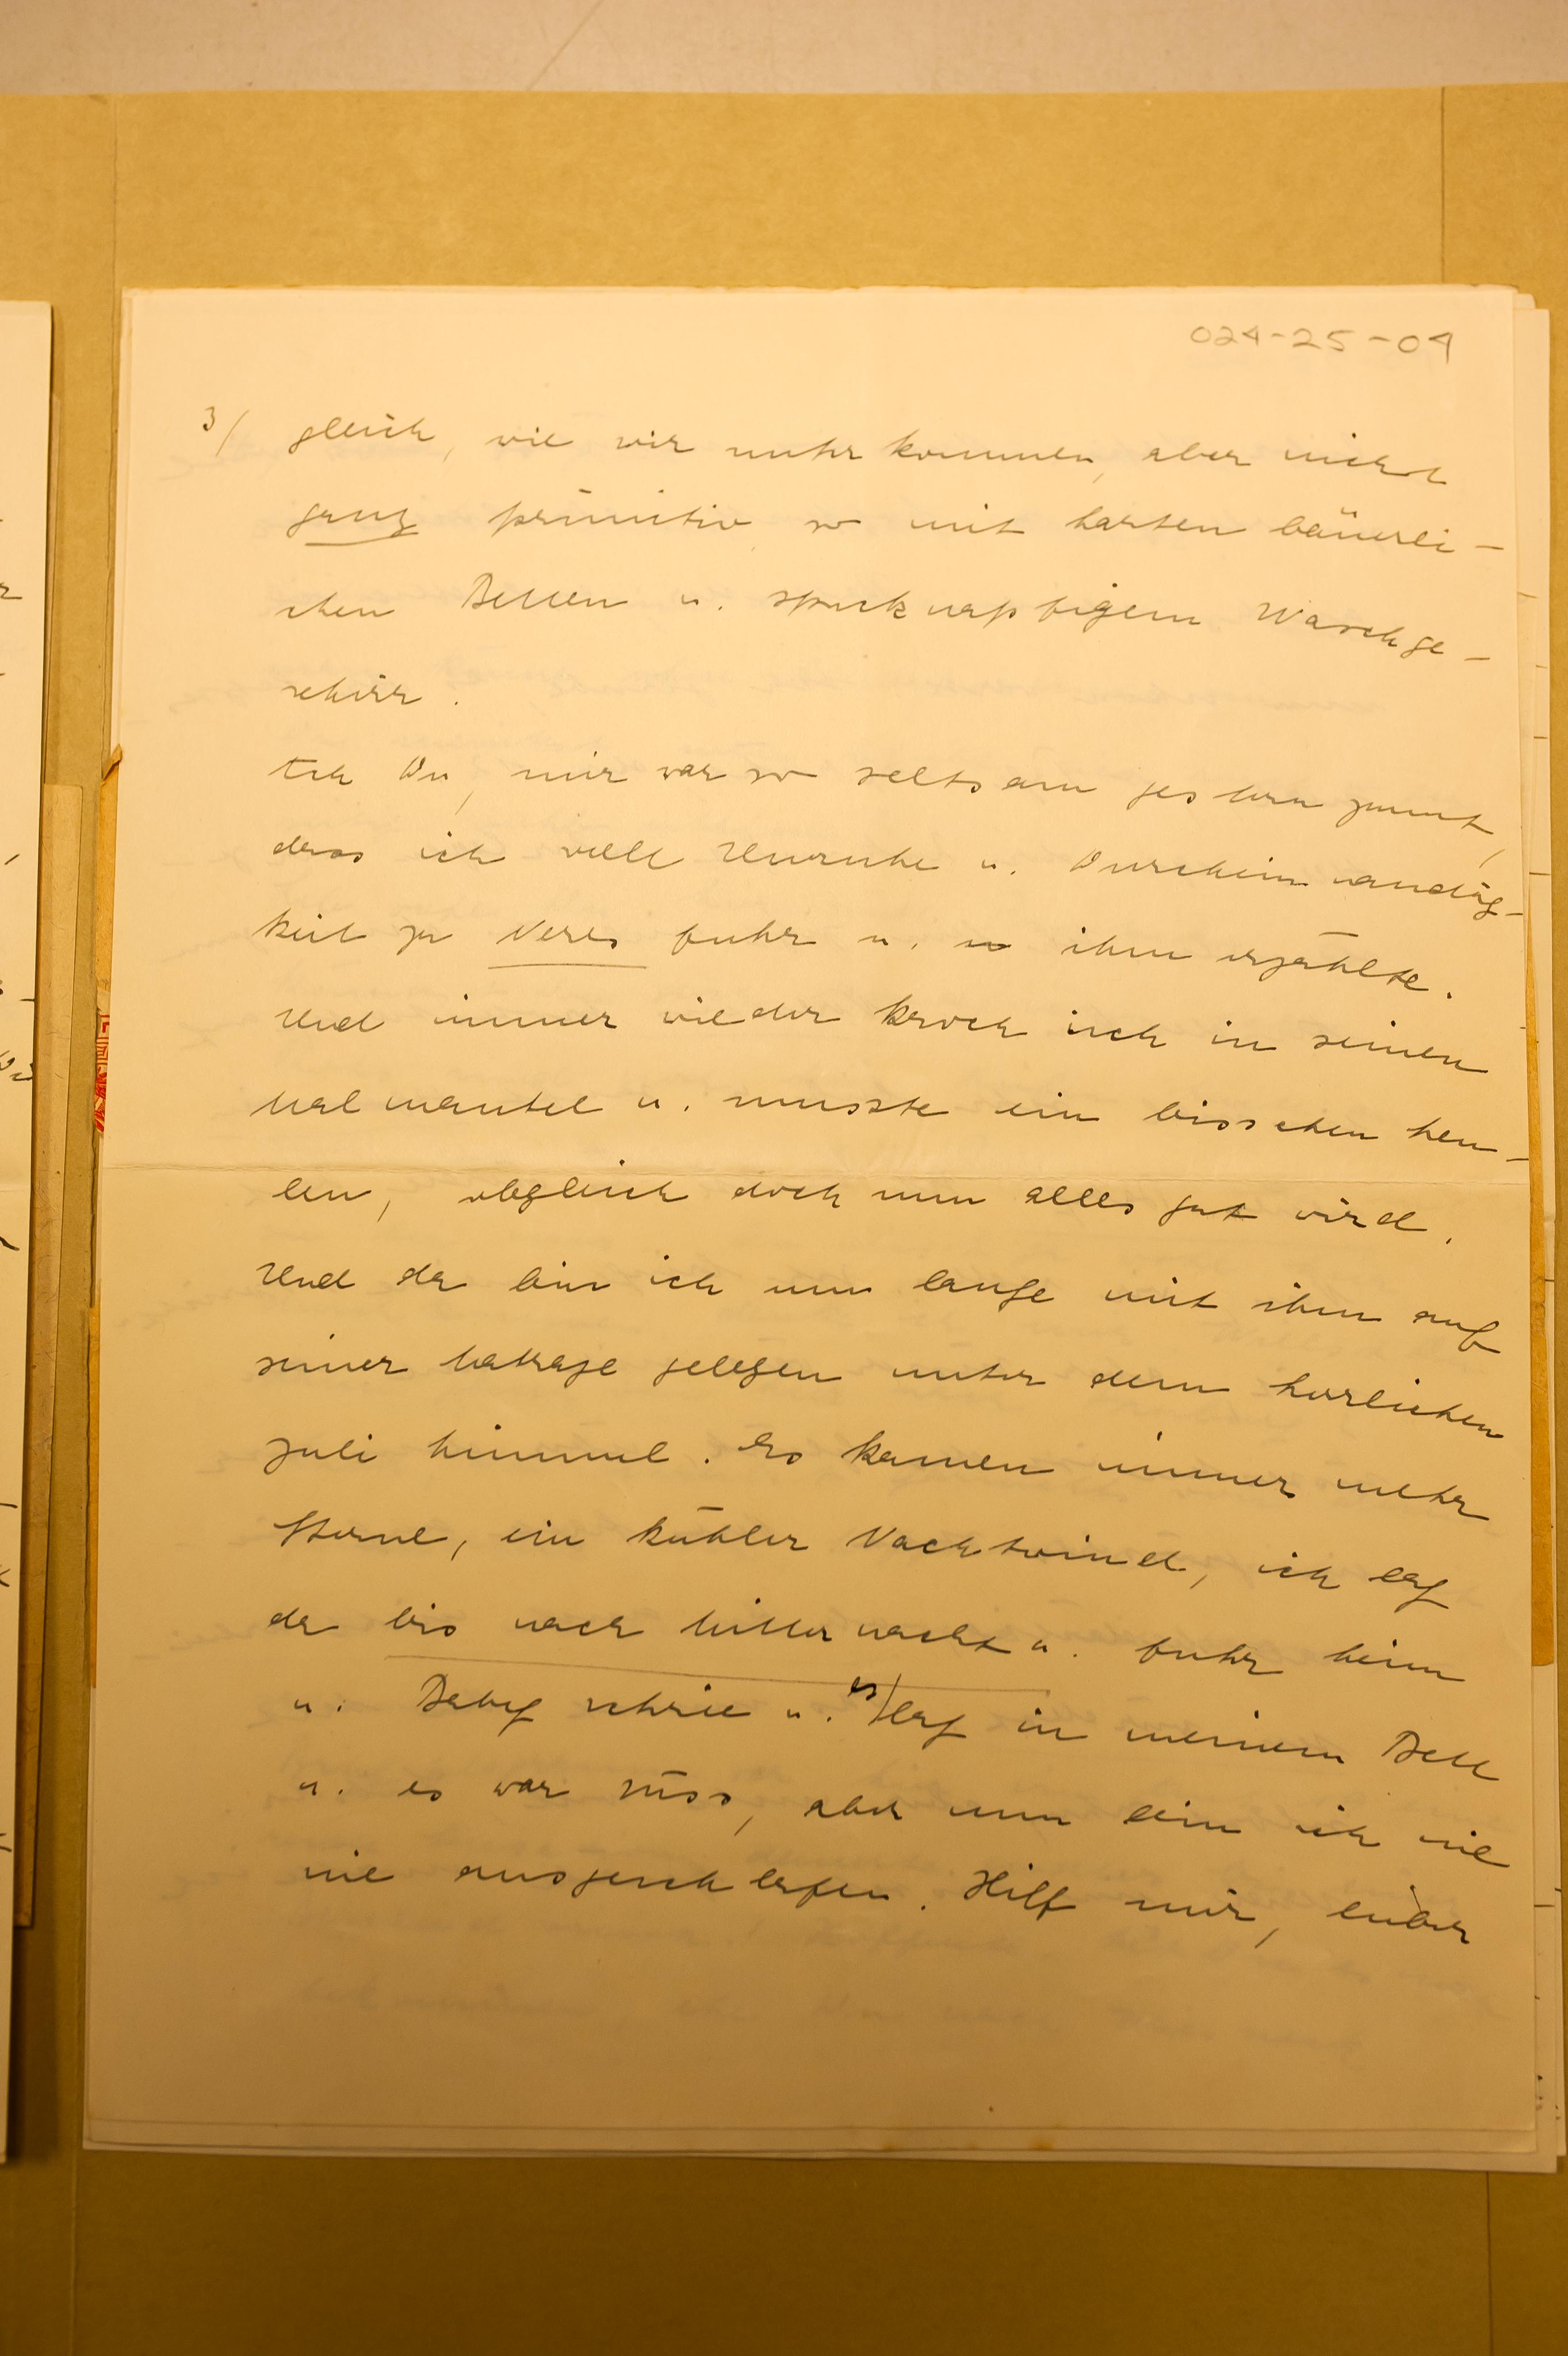 024-25-04
3/ gleich, wie wir unterkommen, aber nicht
ganz primitiv so mit harten bäuerli-
chen Betten u. spucknapfigem Waschge-
schirr.
Ach Du, mir war so seltsam gestern zumut,
dass ich voll Unruhe u. Durcheinanandrig-
keit zu Veres fuhr u. ihm erzählte.
Und immer wieder kroch ich in seinen
Malmantel u. musste ein bisschen heu-
len, obgleich doch nun alles gut wird.
Und da bin ich nun lange mit ihm auf
seiner Matraze gelegen unter dem herrlichen
Juli himmel. Es kamen immer mehr
Sterne, ein kühler Nachtwind, ich lag
da bis nach Mitternacht u. fuhr heim
u. Baby schrie u. es lag in meinem Bett
u. es war süss, aber nun bin ich nie
nie ausgeschlafen. Hilf mir, lieber